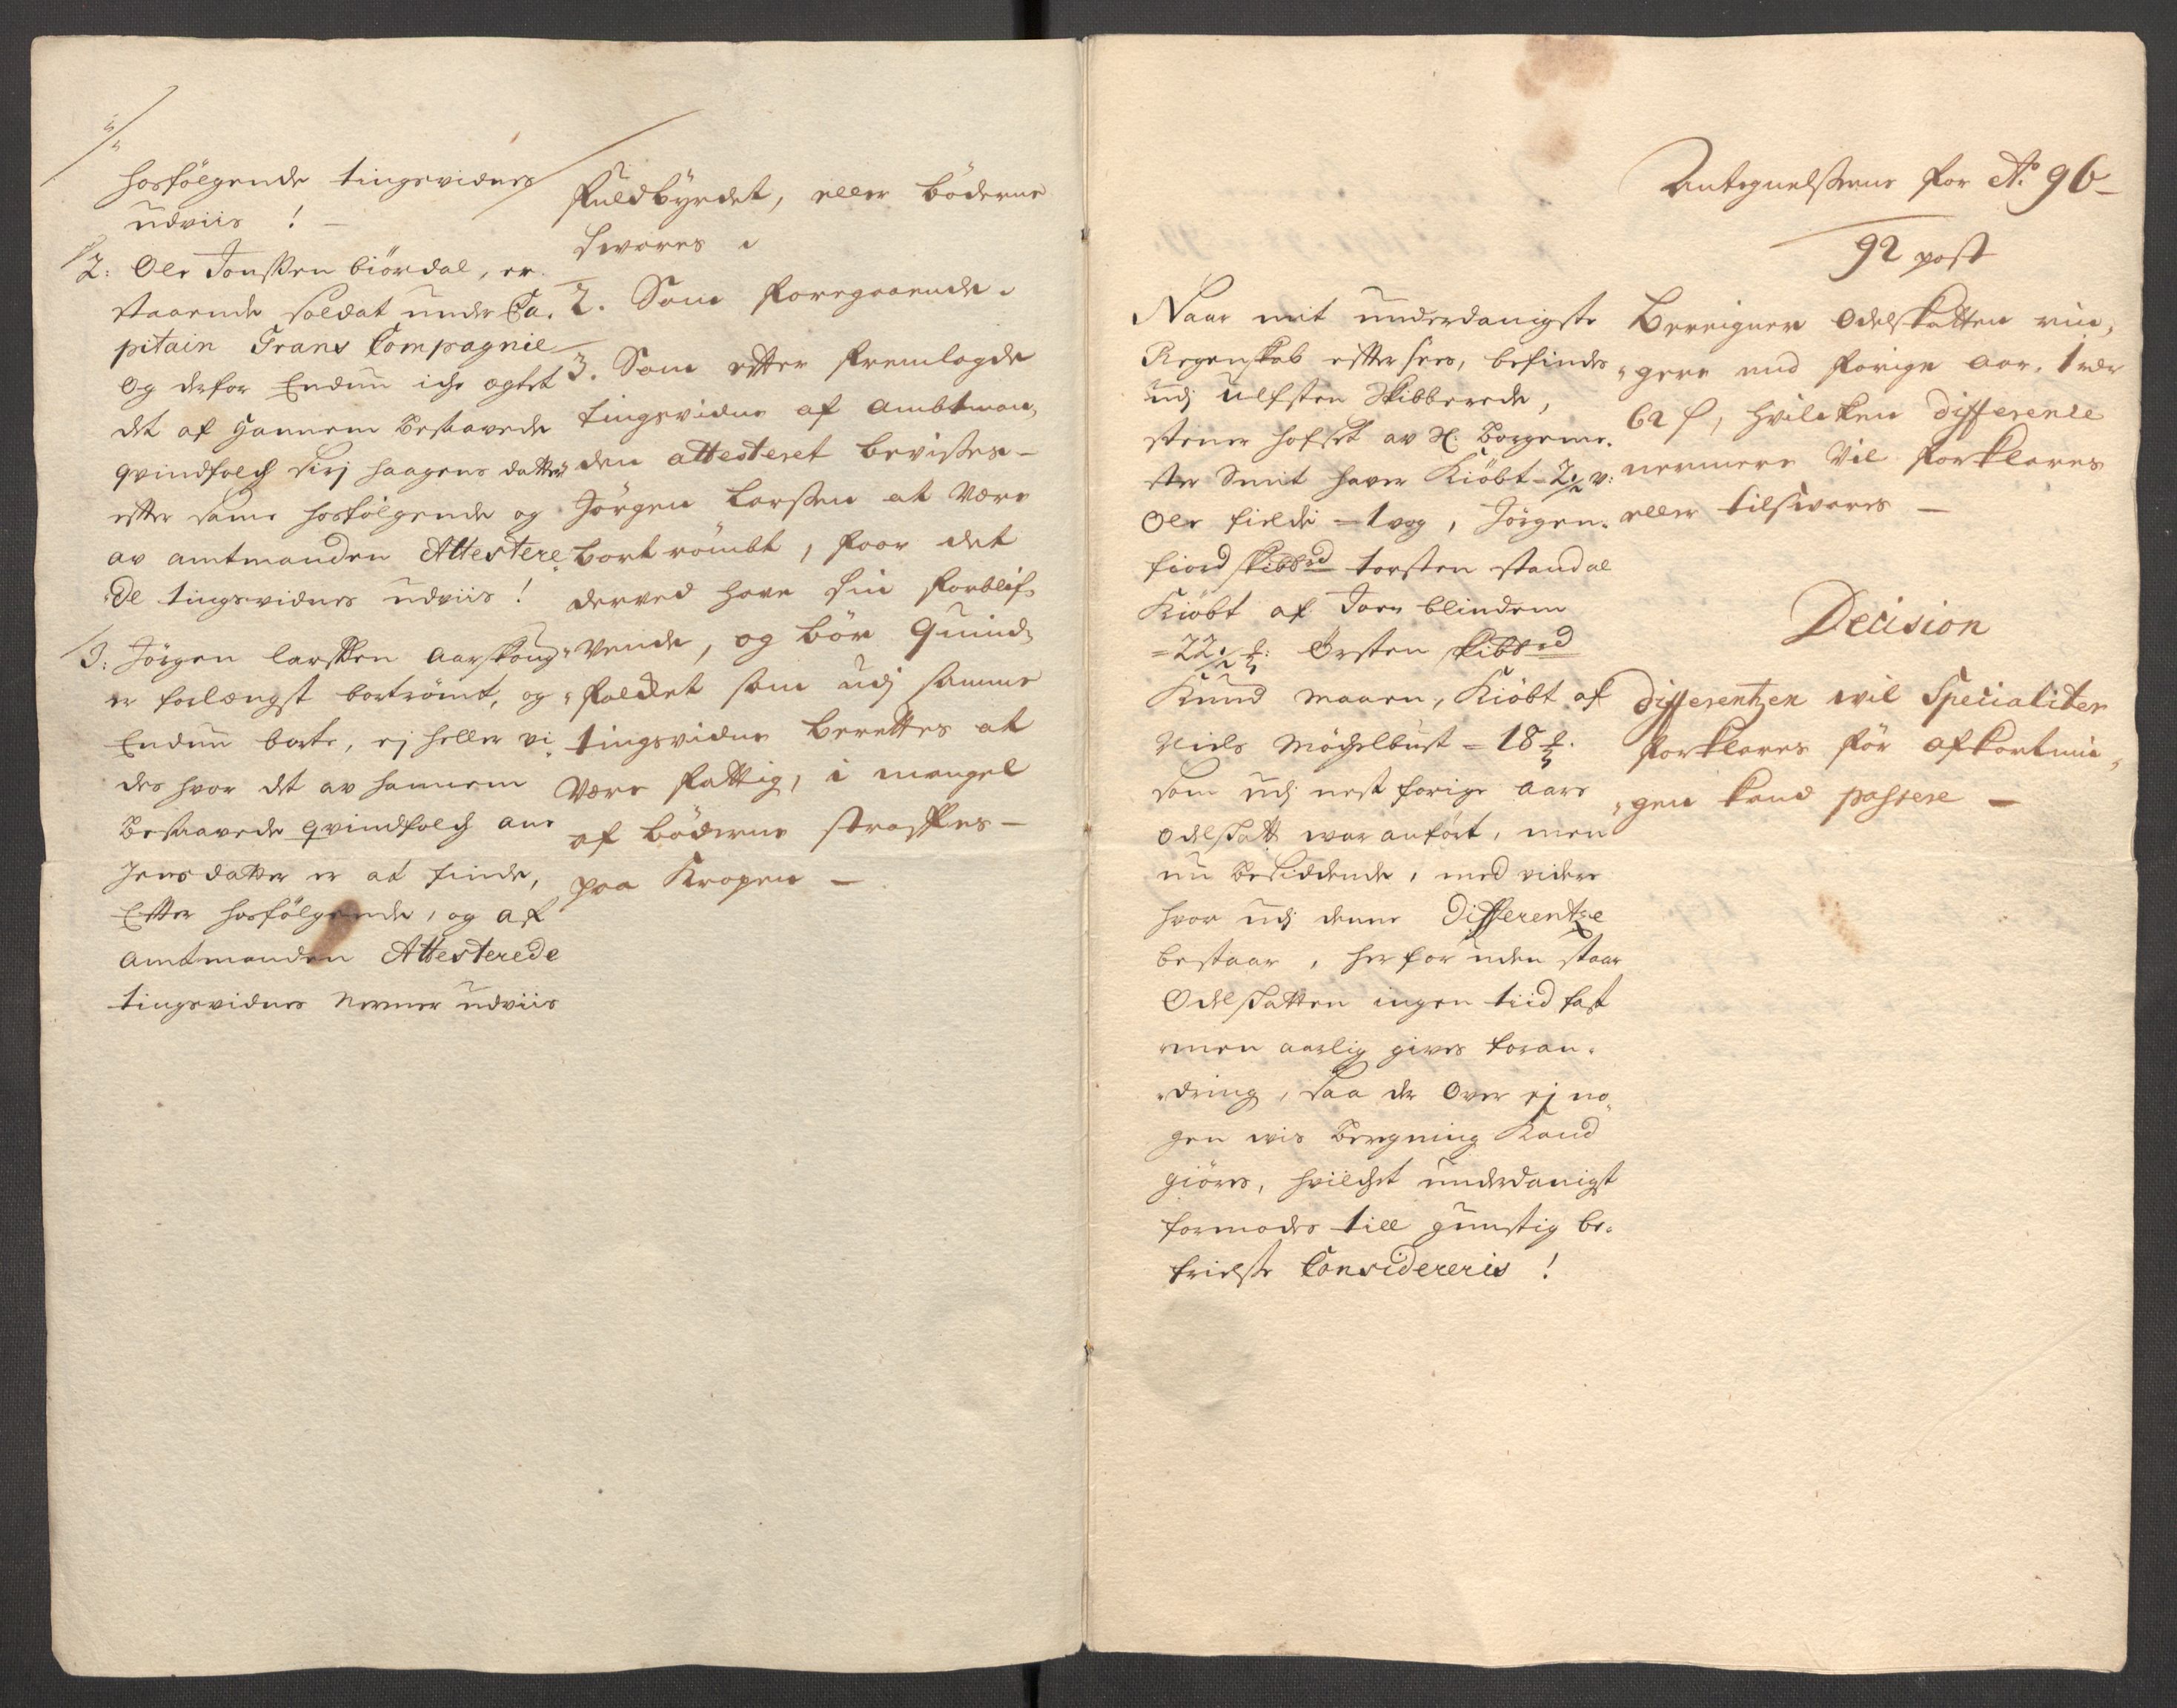 hosfölgende tingsvidnes
udviis ! –
2: Ole Jonssen Biördal, er
staaende soldat under Ca,
pitain Frans Compagnie
og derfor Endnu iche ægtet
det af hannem besaavede
qvindfolch Sirj Haagens datter
efter samme hosfölgende og
av amtmanden Attestere
de tingsvidnes udviis !
3: Jörgen Larssen Aarskoug
er forlængst bortrömt, og
Endnu borte, ej heller vi
des hvor det av hannem
besaavede qvindfolch Ane
Jensdatter er at finde,
Efter hosfölgende, og af
Amtmanden Attesterede
tingsvidnes Nermer udviis
fuldbyrdet, eller böderne
Svares
2. Som foregaaende
3. Som efter fremlagde
tingsvidne af Ambtman,
den attesteret bevises –
Jörgen Larssen at være
bort römbt, faar det
derved have sin forblif,
vende, og bör Quind,
folchet som udj samme
tingsvidne berettes at
være fattig, i mangel
af böderne straffes –
paa Kropen –
Antegnelserne for Ao 96 –
92 post
Naar mit underdanigste
Regenskab efftersees, befindes
udj Ulfsten Skibberede,
stener hofset av H. Borgeme,
ster Smit haver Kiöbt – 2½ v:
Ole fielde = 1 vog, Jörgen,
fiord skibbrd torsten standal
Kiöbt af Joen blindem
= 22½ ℔: Örsten skibbrd
Knud Maaren, Kiöbt af
Niels Möchelbust = 18 ℔.
som udj nest forige Aars
Odelskatt war anfört, men
nu besiddende, med videre
hvor udj denne Differentze
bestaar, her for uden staar
Odelskatten ingen tiid fast
men aarlig gives foran,
dring, saa der Over ej no,
gen wis bereegning Kand
giöres, hvilchet underdanigst
formodes till gunstig be,
frielse Considereris !
Bereigner Odelskatten rin,
gere end forige Aar. 1 rdr
62 s, hvilcken difference
nermere vil forklares
eller tilsvares –
Decision
differentzen wil Specialiter
forklares för afkortnin,
gen kand passere –